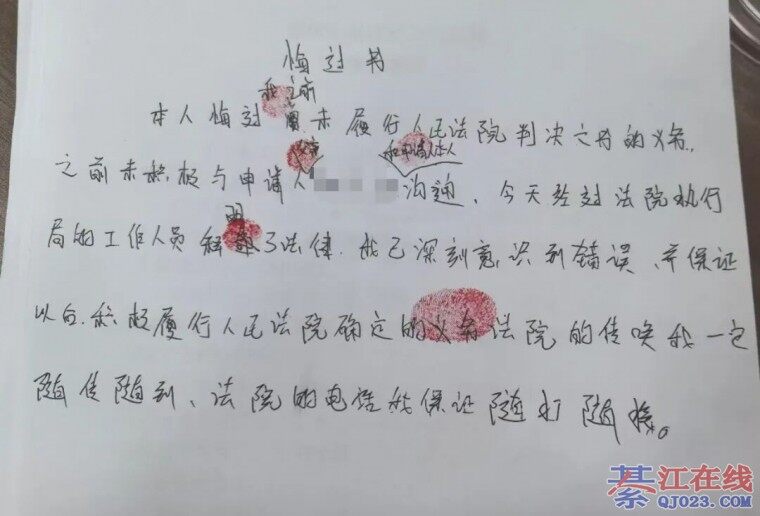 悔过书
我之前
本人悔过 未履行人民法院判决文书的义务,
和申请人本人
之前未积极与申请人 沟通,今天经过法院执行
明
局的工作人员释 了法律.我已深刻意识到错误、并保证
以后.积极履行人民法院确定的义务法院的传唤我一定
随传随到、法院的电话我保证随打随接。
綦江在线
QJ023.COM